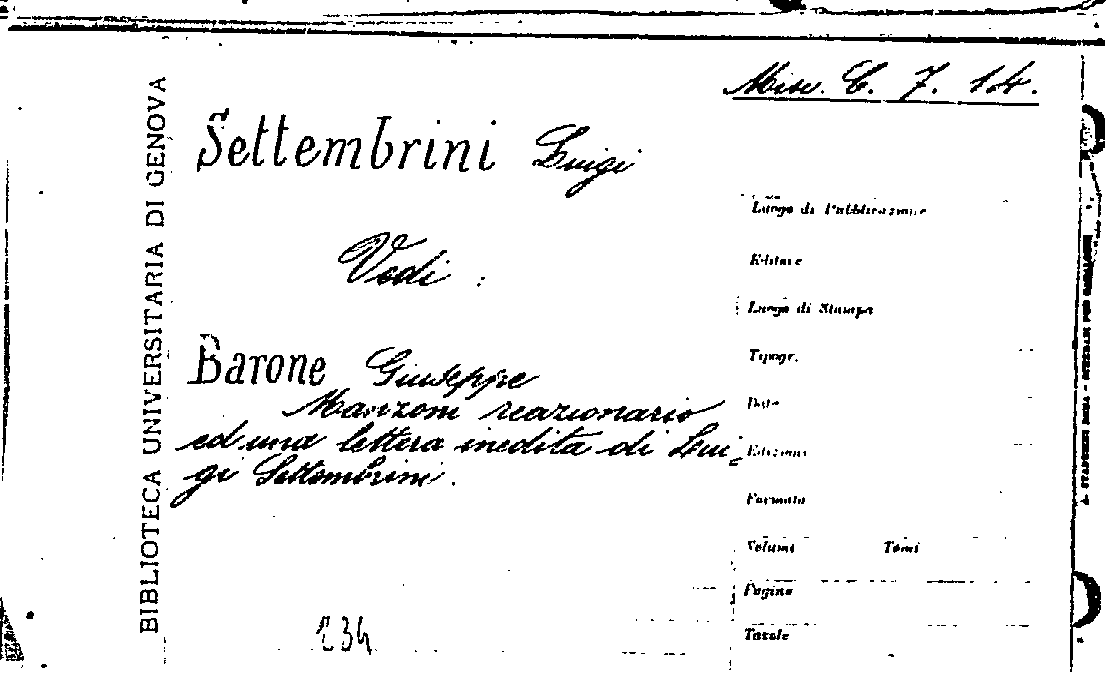 Misc. C. 7. 14.
BIBLIOTECA UNIVERSITARIA DI GENOVA
Settembrini Luigi
Vedi :
Barone Giuseppe
Manzoni reazionario
ed una lettera inedita di Lui-
gi Settembrini.
234
Luogo di Pubblicazione
Editore
Luogo di Stampa
Tipogr.
Data
Edizioni
Formato
Volumi Tomi
Pagine
Tavole